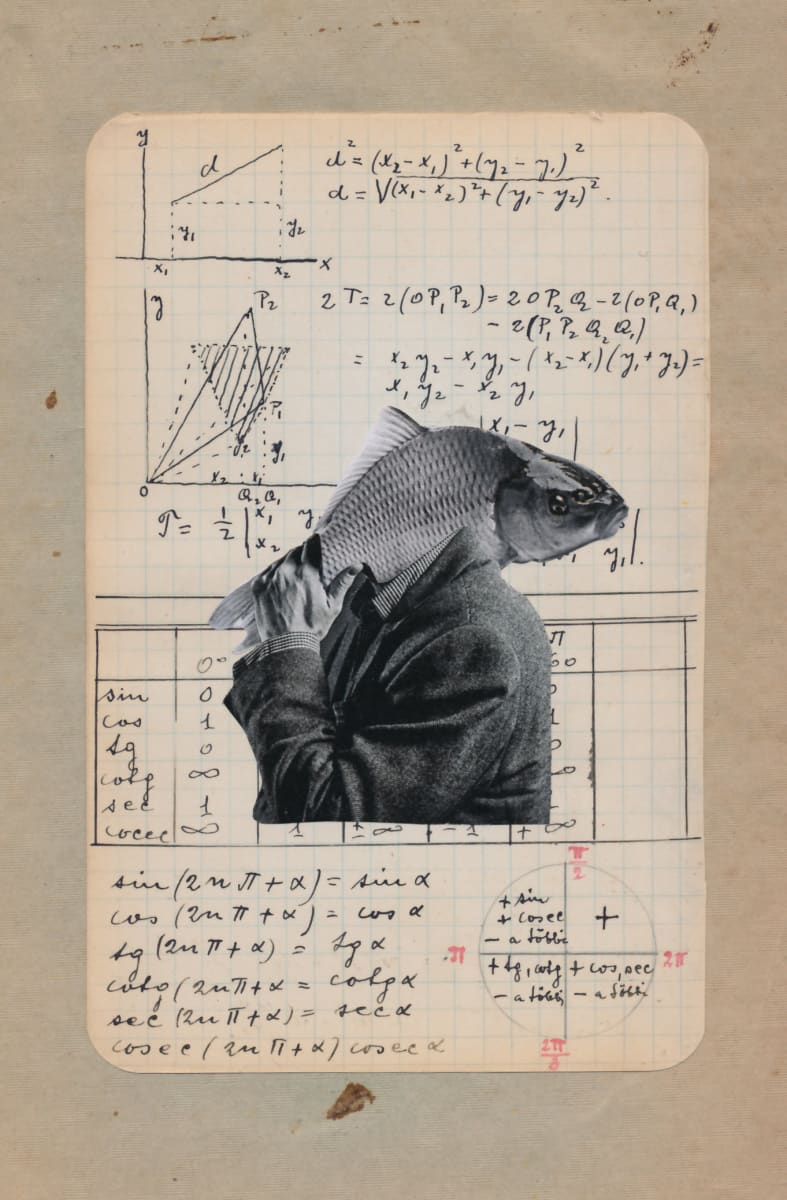 y
d
y₁
y₂
x₁
x₂
x
d² = (x₂ - x₁)² + (y₂ - y₁)²
d = √(x₁ - x₂)² + (y₁ - y₂)².
y
P₂
P₁
y₂
y₁
x₂
x₁
O
Q₂ Q₁
2 T = 2 (O P₁ P₂) = 2 O P₂ Q₂ - 2 (O P₁ Q₁)
- 2 (P₁ P₂ Q₂ Q₁)
= x₂ y₂ - x₁ y₁ - (x₂ - x₁) (y₁ + y₂) =
x₁ y₂ - x₂ y₁
|x₁ - y₁|
T = 1/2 |x₁ y
x₂
y₁|.
π
0°
sin 0
cos 1
tg 0
cotg ∞
sec 1
cocec ∞ 1 ± ∞ - 1 + ∞
sin (2n π + α) = sin α
cos (2n π + α) = cos α
tg (2n π + α) = tg α
cotg (2n π + α = cotg α
sec (2n π + α) = sec α
cosec (2n π + α) cosec α
π/2
+ sin
+ cosec
- a többi
+
π
2π
+ tg, cotg
- a többi
+ cos, sec
- a többi
2π/3